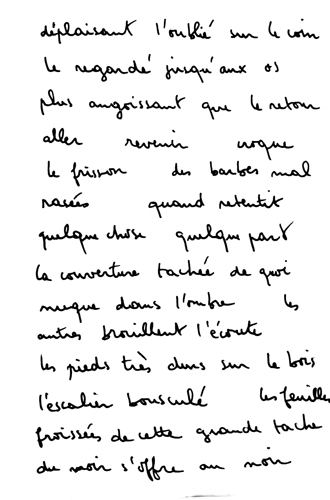 déplaisant l'oublié sur le coin
le regardé jusqu'aux os
plus angoissant que le retour
aller revenir croque
le frisson des barbes mal
rasées quand retentit
quelque chose quelque part
la couverture tachée de quoi
nuque dans l'ombre les
autres brouillent l'écoute
les pieds très durs sur le bois
l'escalier bousculé les feuilles
froissées de cette grande tache
du noir s'offre au noir